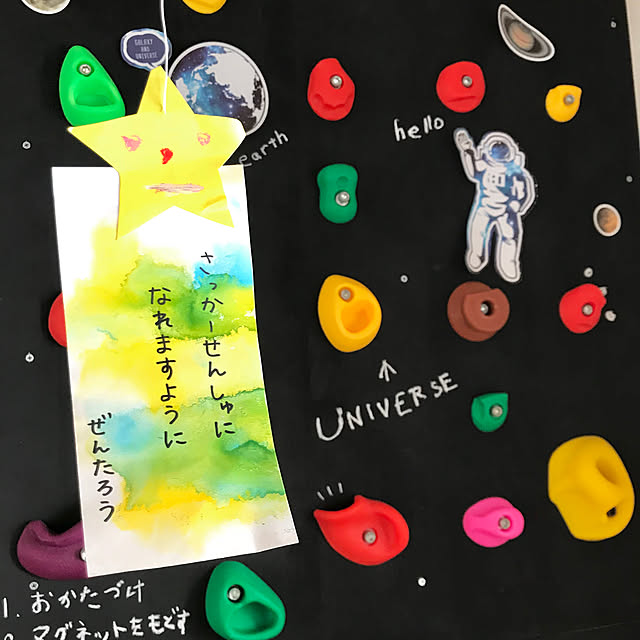 GALAXY
AND
UNIVERSE
earth
hello
さっかーせんしゅに
なれますように
ぜんたろう
↑
UNIVERSE
1. おかたづけ
2 マグネットをもどす